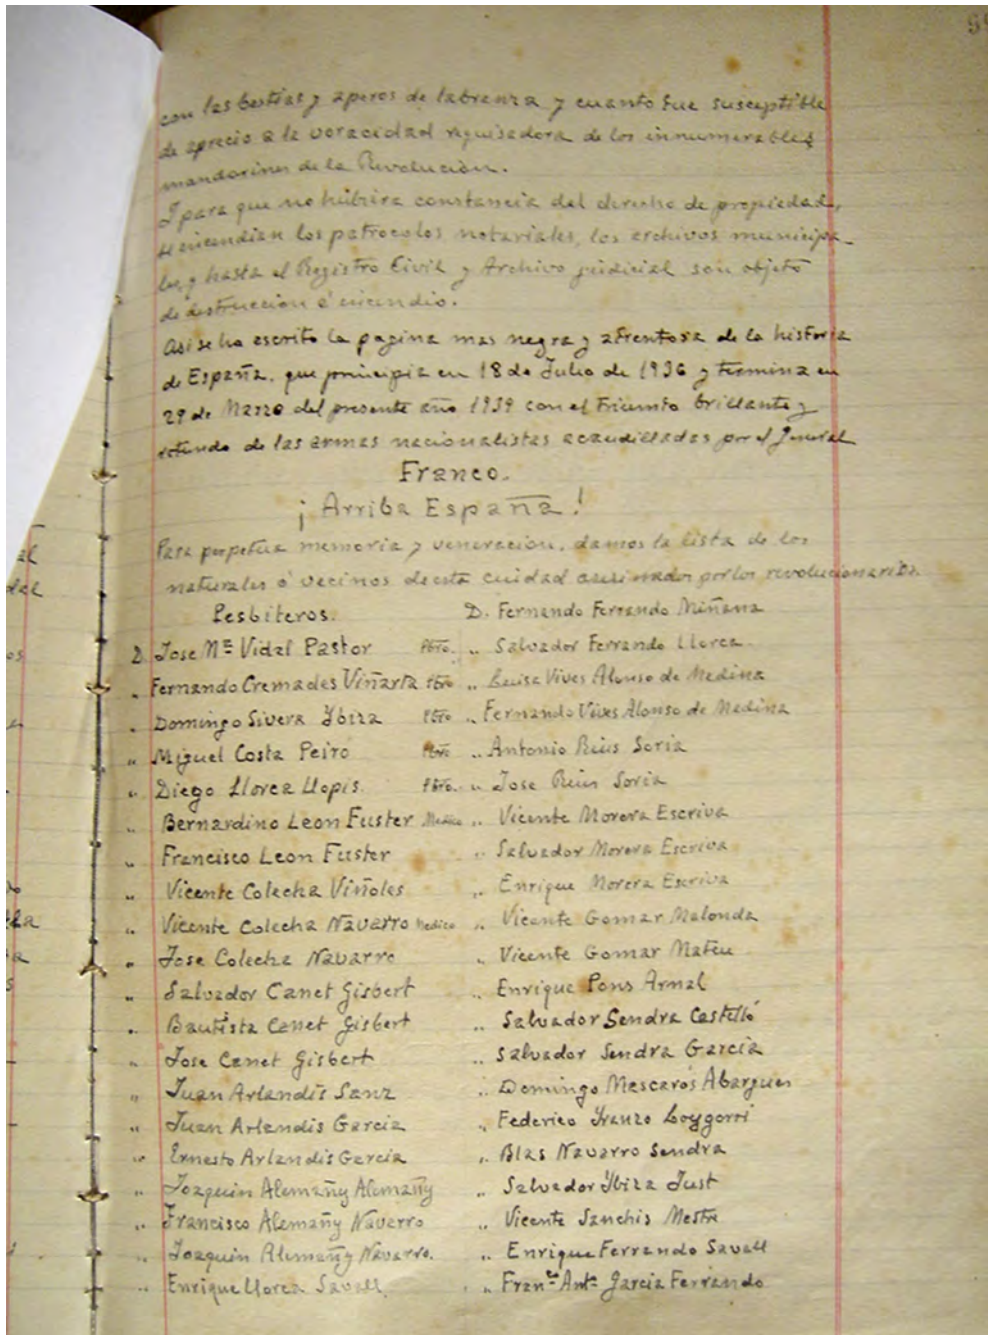 con las bestias y aperos de labranza y cuanto fue susceptible
de aprecio a la voracidad requisadora de los innumerables
mandarines de la Revolución.
I para que no hubiera constancia del derecho de propiedad,
se incendian los protocolos notariales, los archivos municipa-
les, y hasta el Registro Civil y Archivo judicial son objeto
de destruccion é incendio.
Asi se ha escrito la pagina mas negra y afrentosa de la historia
de España, que principia en 18 de Julio de 1936 y termina en
29 de Marzo del presente año 1939 con el Triumfo brillante y
rotundo de las armas nacionalistas acaudilladas por el General
Franco.
¡Arriba España!
Para perpetua memoria y veneracion, damos la lista de los
naturales ó vecinos de esta cuidad asesinados por los revolucionarios.
Pesbiteros.
D. Jose Mª Vidal Pastor Pbro.
" Fernando Cremades Viñarta Pbro
" Domingo Sivera Ybiza Pbro
" Miguel Costa Peiro Pbro
" Diego Llorca Llopis. Pbro.
" Bernardino Leon Fuster
" Francisco Leon Fuster
" Vicente Colecha Viñoles
" Vicente Colecha Navarro Medico
" Jose Colecha Navarro
" Salvador Canet Gisbert
" Bautista Canet Gisbert
" Jose Canet Gisbert
" Juan Arlandis Sanz
" Juan Arlandis Garcia
" Ernesto Arlandis Garcia
" Joaquin Alemañy Alemañy
" Francisco Alemañy Navarro
" Joaquin Alemañy Navarro.
" Enrique Llorca Savall.
D. Fernando Ferrando Miñana
" Salvador Ferrando Llorca.
" Luisa Vives Alonso de Medina
" Fernando Vives Alonso de Medina
" Antonio Rius Soria
" Jose Rius Soria
" Vicente Morera Escriva
" Salvador Morera Escriva
" Enrique Morera Escriva
" Vicente Gomar Malonda
" Vicente Gomar Mateu
" Enrique Pons Arnal
" Salvador Sendra Castelló
" Salvador Sendra Garcia
" Domingo Mascarós Abargues
" Federico Yranzo Loygorri
" Blas Navarro Sendra
" Salvador Ybiza Just
" Vicente Sanchis Mestre
" Enrique Ferrando Savall
" Franco Antº Garcia Ferrando